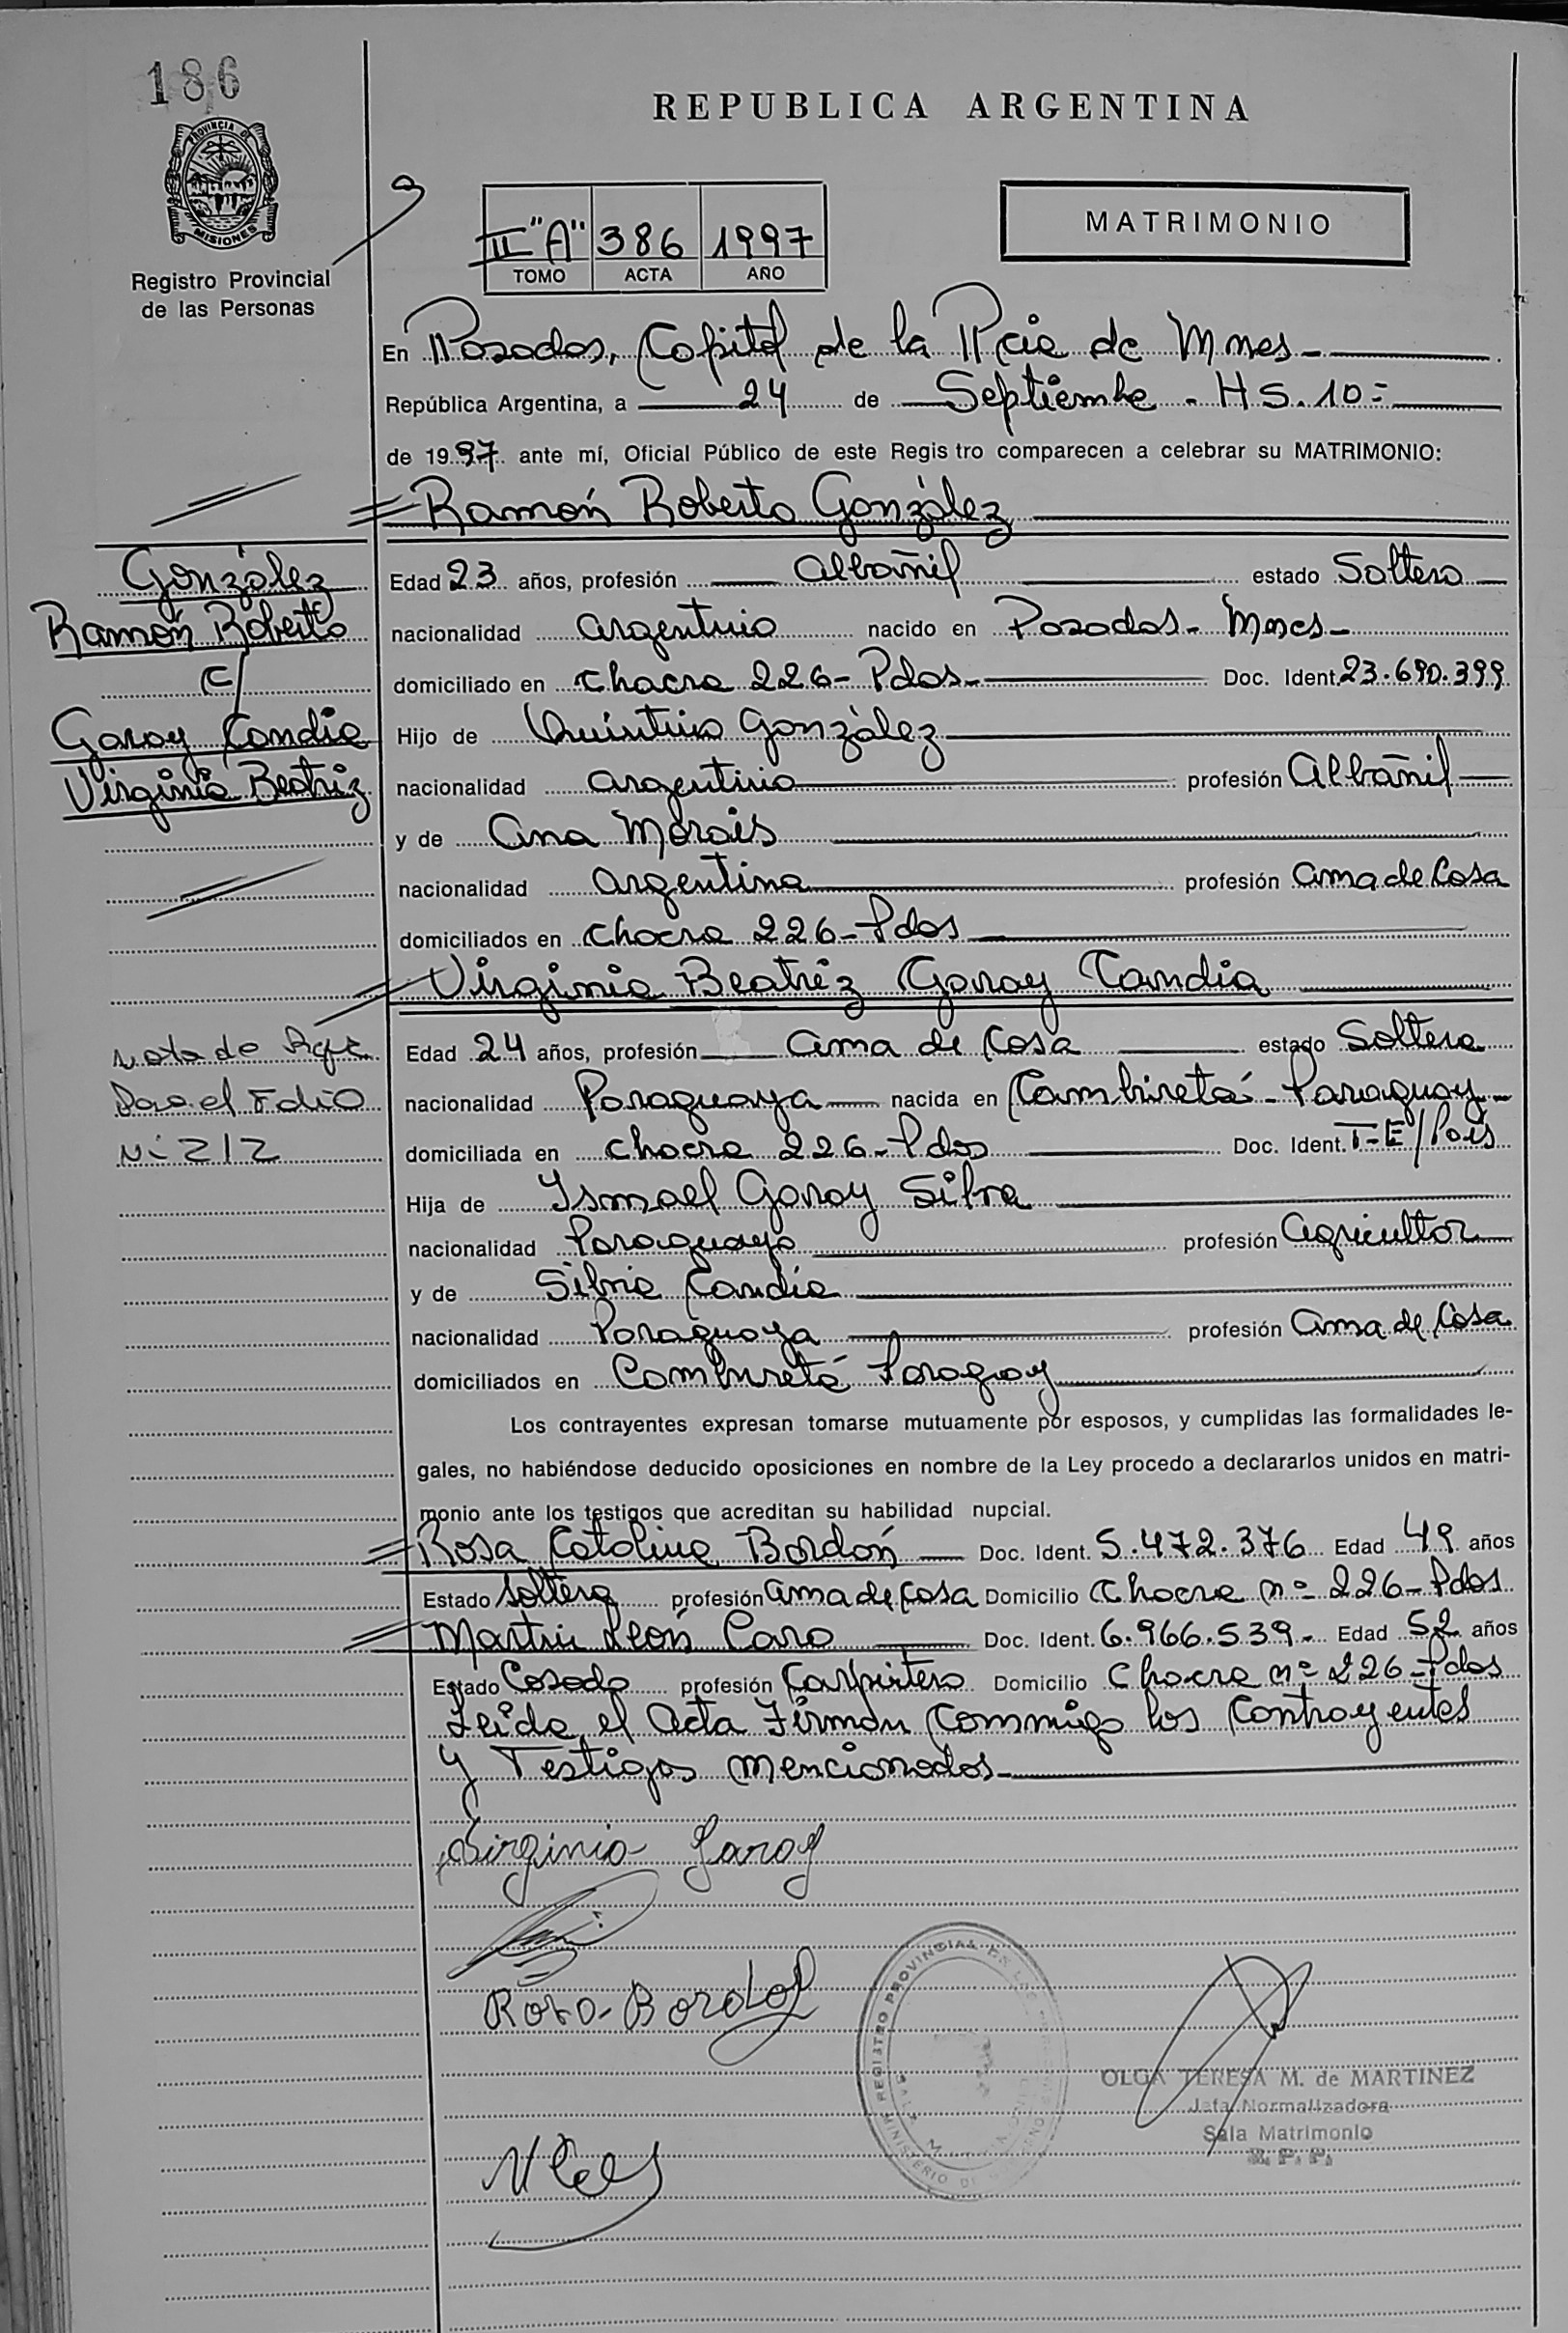 186
REPUBLICA ARGENTINA
PROVINCIA DE
MISIONES
Registro Provincial
de las Personas
II "A" 386 1997
TOMO ACTA AÑO
MATRIMONIO
En Posadas, Capital de la Pcia de Mnes
República Argentina, a 24 de Septiembre . HS. 10=
de 1997 ante mí, Oficial Público de este Registro comparecen a celebrar su MATRIMONIO:
Ramón Roberto González
González
Ramón Roberto
C/
Garay Candia
Virginia Beatriz
Edad 23 años, profesión Albañil estado Soltero
nacionalidad argentino nacido en Posadas - Mnes -
domiciliado en chacra 226 - Pdas - Doc. Ident. 23.690.399
Hijo de Quintino González
nacionalidad argentino profesión Albañil
y de Ana Morais
nacionalidad argentina profesión ama de Casa
domiciliados en chacra 226 - Pdas
Virginia Beatriz Garay Candia
Nota de
Para el Folio
Nº 212
Edad 24 años, profesión ama de Casa estado Soltera
nacionalidad Paraguaya nacida en Cambiretá - Paraguay -
domiciliada en chacra 226 - Pdas Doc. Ident. T-E/País
Hija de Ismael Garay Silva
nacionalidad Paraguayo profesión agricultor
y de Silvia Candia
nacionalidad Paraguaya profesión ama de Casa
domiciliados en Cambiretá Paraguay
Los contrayentes expresan tomarse mutuamente por esposos, y cumplidas las formalidades le-
gales, no habiéndose deducido oposiciones en nombre de la Ley procedo a declararlos unidos en matri-
monio ante los testigos que acreditan su habilidad nupcial.
Rosa Catalina Bordón Doc. Ident. 5.472.376 Edad 49 años
Estado soltera profesión ama de casa Domicilio Chacra nº 226 - Pdas
Martin León Caro Doc. Ident. 6.966.539 - Edad 52 años
Estado Casado profesión Carpintero Domicilio Chacra nº 226 - Pdas
Leida el acta Firman Conmigo los Contrayentes
y Testigos mencionados
Virginia Garay
Rosa Bordon
REGISTRO PROVINCIAL DE LAS
MINISTERIO DE
OLGA TERESA M. de MARTINEZ
Jefa Normalizadora
Sala Matrimonio
R. P. P.